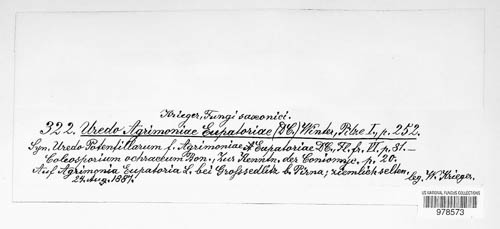 Krieger, Fungi saxonici.
322. Uredo Agrimoniae Eupatoriae (DC.) Winter, Pilze I., p. 252.
Syn. Uredo Potentillarum f. Agrimoniae Eupatoriae DC., Fl. fr. VI, p. 81.—
Coleosporium ochraceum Bon., Zur Kenntn. der Coniomyc. p. 20.
Auf Agrimonia Eupatoria L. bei Großsedlitz b. Pirna; ziemlich selten.
24. Aug. 1887.
leg. W. Krieger.
US NATIONAL FUNGUS COLLECTIONS
978573